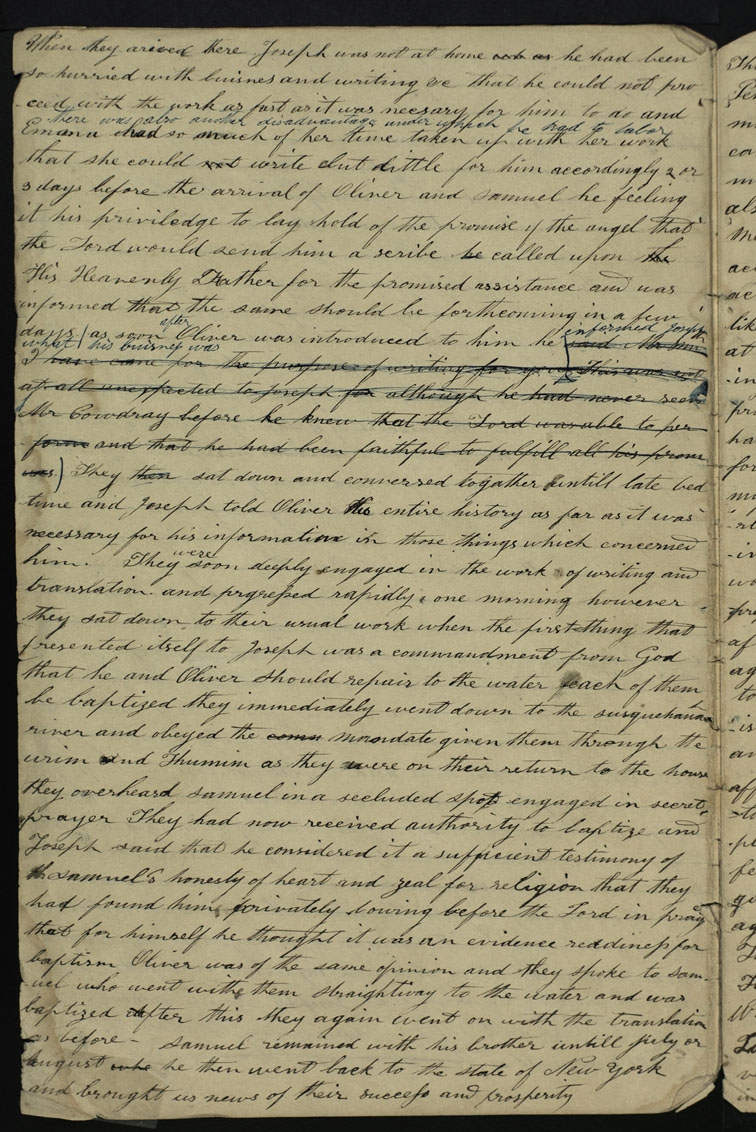 When they arived there Joseph was not at home he had been
so hurried with buisnes and writing &c that he could not pro
-ceed with the work as fast as it was necsary for him to do and
there was also another disadvantage under which he had to labor
Emma had so much of her time taken up with her work
that she could not write but little for him accordingly 2 or
3 days before the arrival of Oliver and Samuel he feeling
it his priviledge to lay hold of the promise of the angel that
the Lord would send him a scribe he called upon the
His Heavenly Father for the promised assistance and was
informed that the same should be forthcoming in a few
days as soon after Oliver was introduced to him he informed Joseph
what his buisness was said Mr Smith
I have come for the purpose of writing for you This was not
at all unexpected to Joseph for although he had never seen
Mr Cowdray before he knew that the Lord was able to per
-form and that he had been faithful to fulfill all his prom
-ises) They then sat down and conversed togather untill late bed
time and Joseph told Oliver his entire history as far as it was
necessary for his information in those things which concerned
him. They were soon deeply engaged in the work of writing and
translation and progressed rapidly one morning however
they sat down to their usual work when the first thing that
presented itself to Joseph was a commandment from God
that he and Oliver should repair to the water each of them
be baptized they immediately went down to the susquehana
river and obeyed the mandate given them through the
urim and Thumim as they were on their return to the house
they overheard samuel in a secluded spot engaged in secret
prayer They had now received authority to baptize and
Joseph said that he considered it a sufficient testimony of
samuel's honesty of heart and zeal for religion that they
had found him privately bowing before the Lord in prayr
that for himself he thought it was an evidence reddiness for
baptism Oliver was of the same opinion and they spoke to Sam-
-uel who went withe them straightway to the water and was
baptized After this they again went on with the translation
as before - Samuel remained with his brother untill july or
August he then went back to the state of New York
and brought us news of their success and prosperity